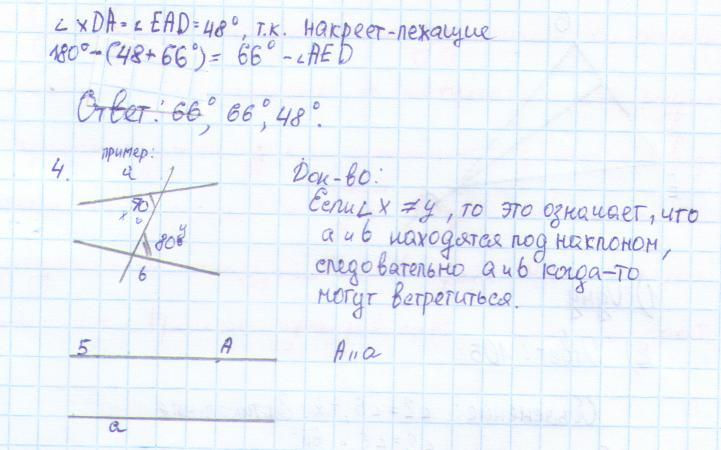 ∠XDA=∠EAD=48°, т.к. накрест-лежащие
180°-(48+66°)= 66° -∠AED
Ответ: 66°, 66°, 48°.
4. пример:
a
70
x
80° y
b
Док-во:
Если ∠ x ≠ y, то это означает, что
a и b находятся под наклоном,
следовательно a и b когда-то
могут встретиться.
5 A
A || a
a